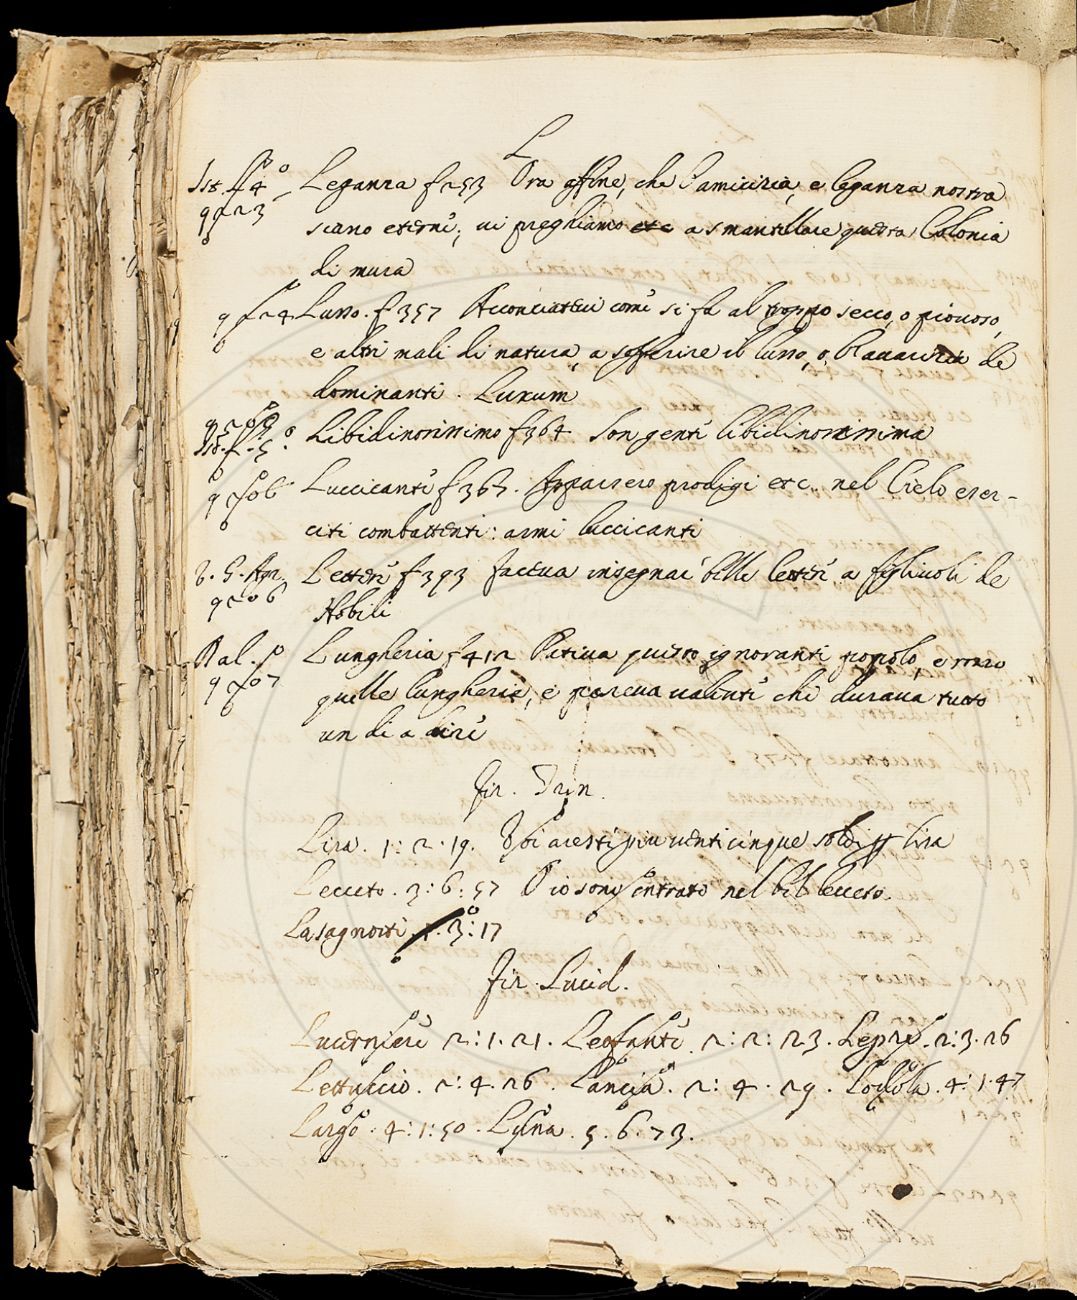 L
Ist. 4° Leganza f 253 Ora affine, che l'amicizia, e leganza nostra
siano eterne; vi preghiamo etc a smantellare questa Colonia
di mura
Lusso. f 357 Acconciatevi come si fa al troppo secco, o piovoso,
e altri mali di natura, a sofferire il lusso, o l'avarizia de
dominanti. Luxum
Ist. 5° Libidinosissimo f 364 Son gente libidinosissima
Luccicante f 367. Apparsero prodigi etc. nel Cielo eser-
citi combattenti: armi luccicanti
Lettere f 393 faceva insegnar belle lettere a figliuoli de
Nobili
Lungheria f 412 Pativa questo ignorante popolo, e
quelle lungherie, e pareva valente chi durava tutto
un di a dire
Fir.
Lira. 1: 2. 19. venticinque soldi lira
Lecceto. 3: 6: 57 entrato nel bel lecceto.
Lasagnoni 3: 17
Fir. Lucid.
Lucerniere 2: 1. 21. Leofante 2: 2: 23. Lepre. 2: 3. 26
Lettuccio. 2: 4. 26. Lancia. 2: 4. 29. 4: 1. 47
Largo. 4: 1: 50. Luna. 5. 6. 73.